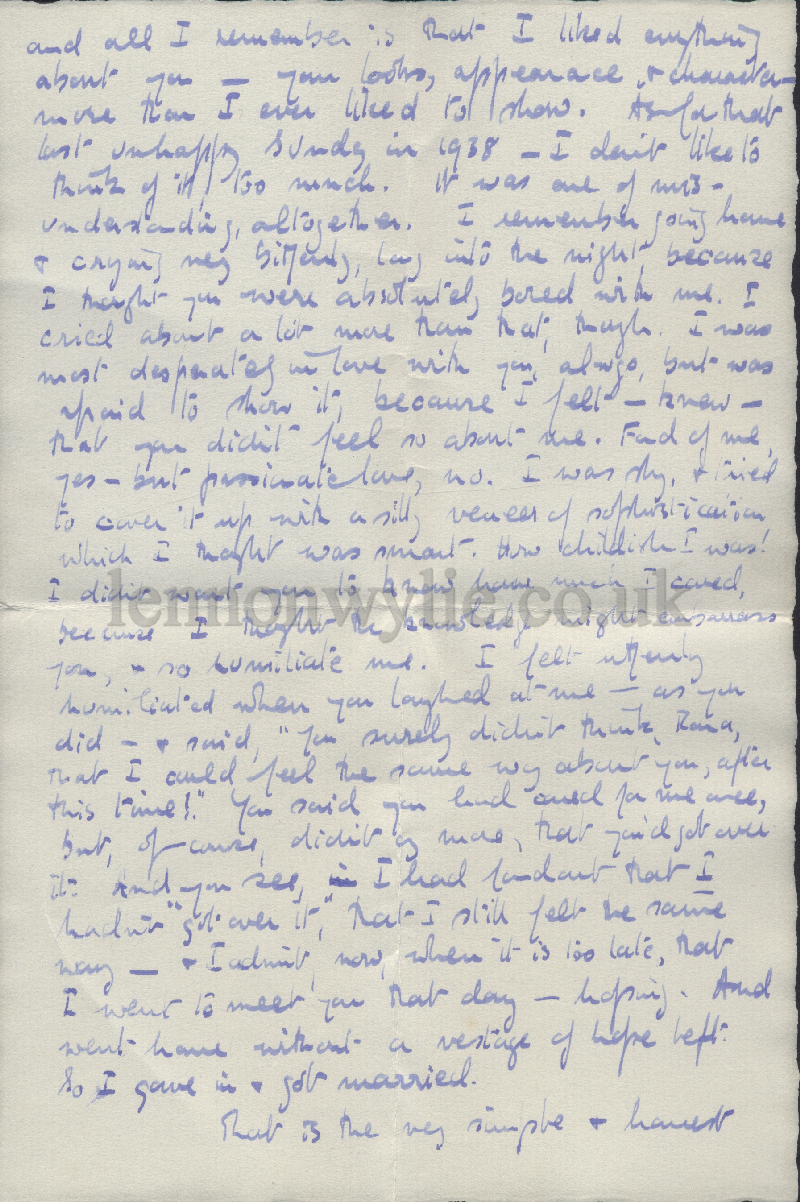 and all I remember is that I liked everything
about you — your looks, appearance, & character —
more than I ever liked to show. As for that
last unhappy Sunday in 1938 — I don't like to
think of it, too much. It was one of mis-
understanding, altogether. I remember going home
& crying very bitterly, long into the night, because
I thought you were absolutely bored with me. I
cried about a lot more than that, though. I was
most desperately in love with you, always, but was
afraid to show it, because I felt — knew —
that you didn't feel so about me. Fond of me,
yes — but passionate love, no. I was shy, & tried
to cover it up with a silly veneer of sophistication
which I thought was smart. How childish I was!
I didn't want you to know how much I cared,
lennonwylie.co.uk
because I thought the knowledge might embarrass
you, & so humiliate me. I felt utterly
humiliated when you laughed at me — as you
did — & said, "You surely didn't think,
that I could feel the same way about you, after
this time!." You said you had cared for me once,
but, of course, didn't any more, that you'd got over
it. And you see, in I had found out that I
hadn't "got over it," that I still felt the same
way — & I admit, now, when it is too late, that
I went to meet you that day — hoping. And
went home without a vestage of hope left.
So I gave in & got married.
That is the very simple & honest